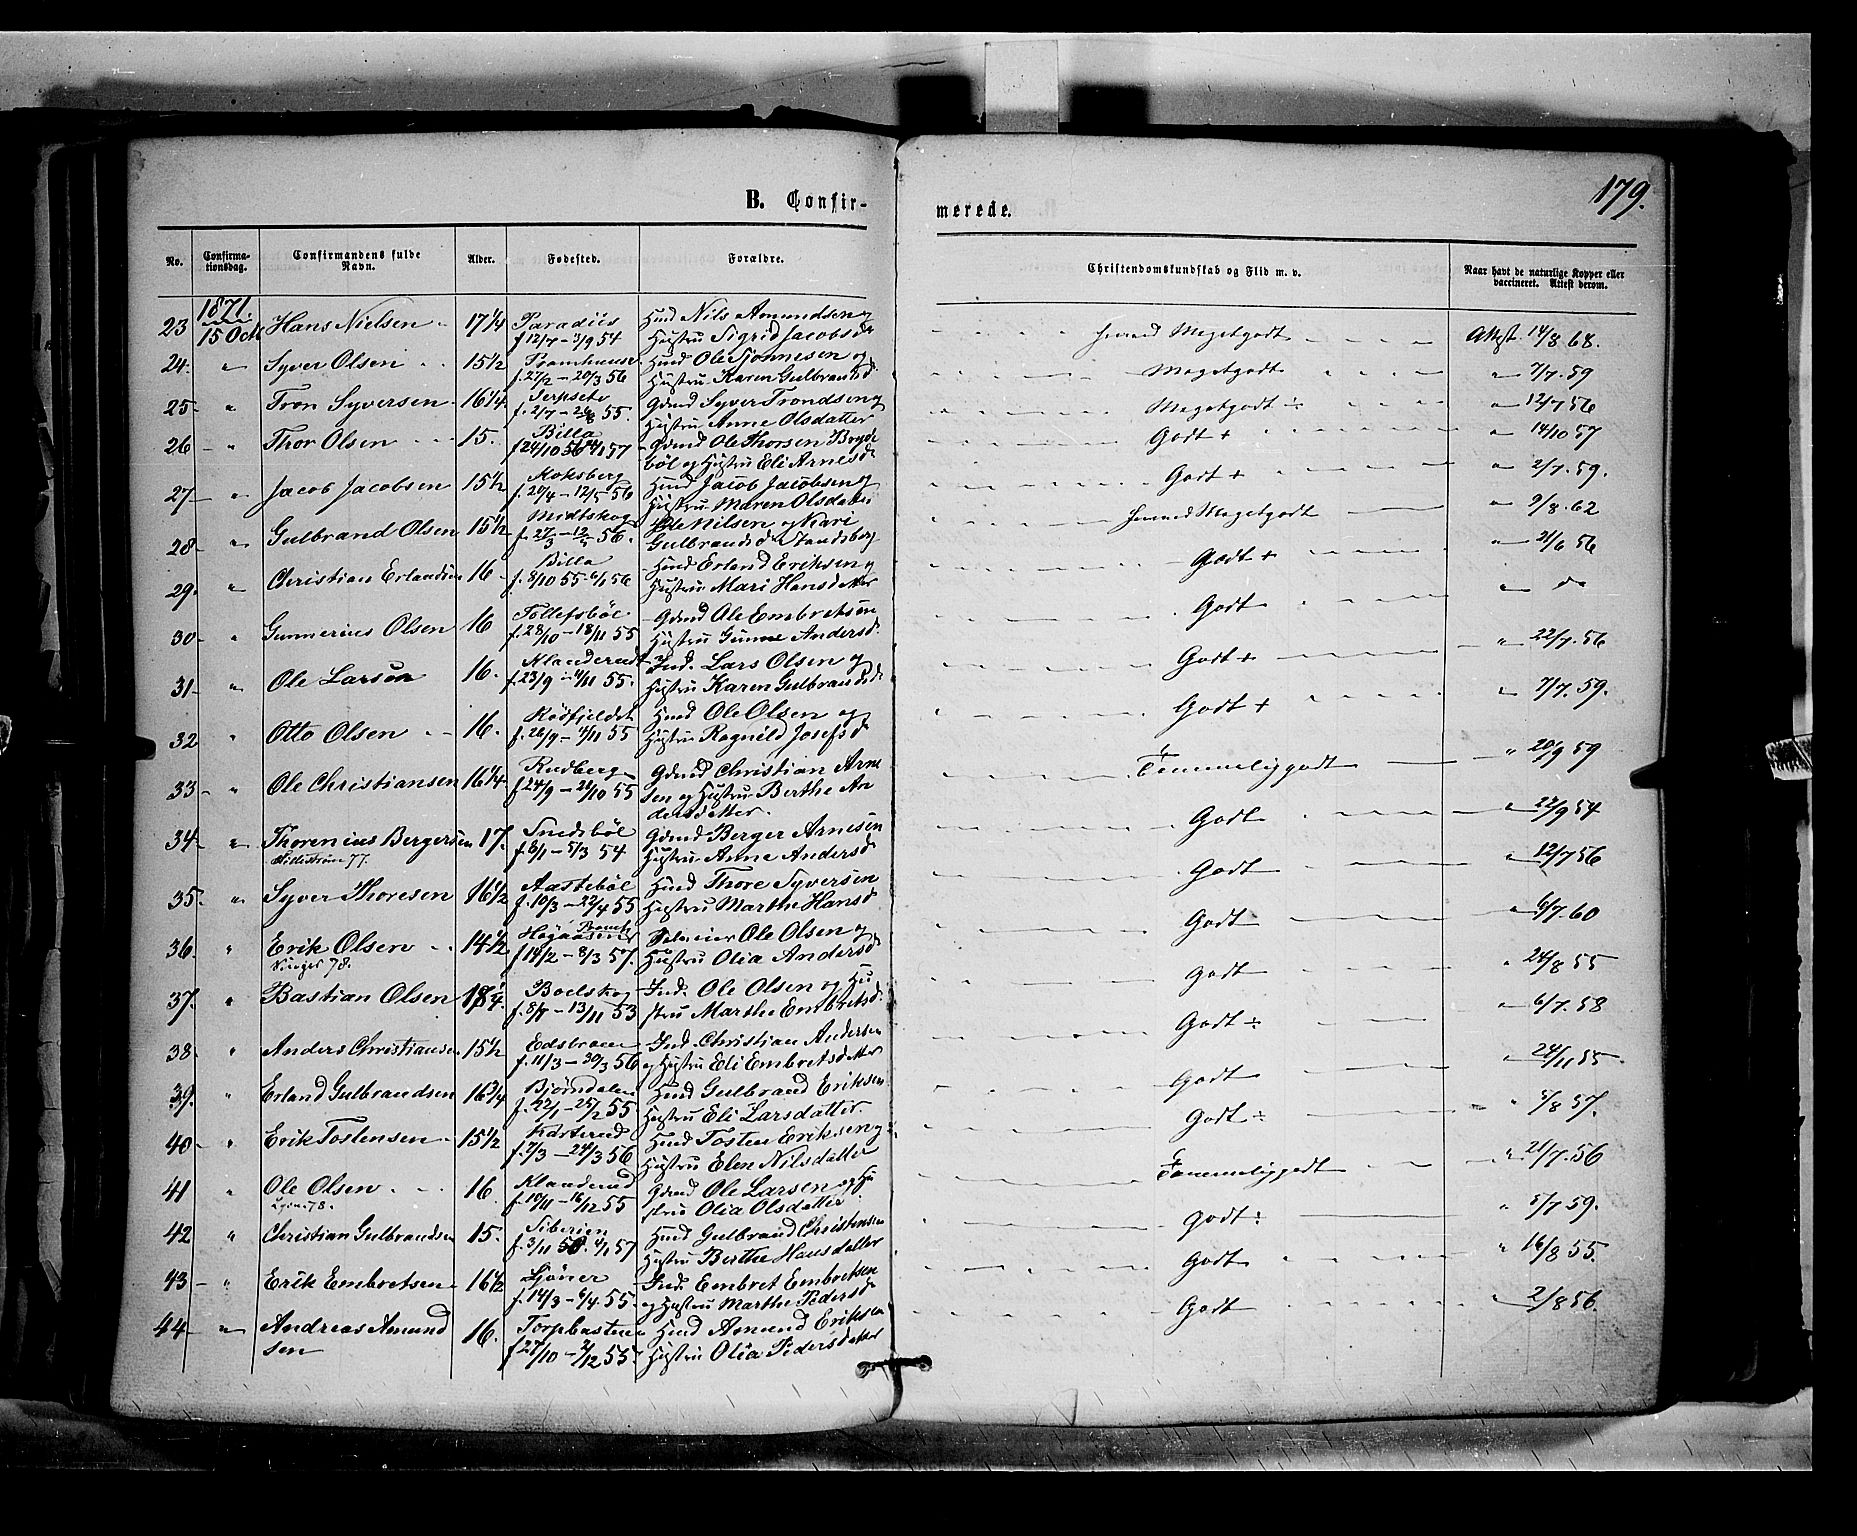 179.
B. Confir-
merede.
No.
Confirma-
tionsdag.
Confirmandens fulde
Navn.
Alder.
Fødested.
Forældre.
Christendomskundskab og Flid m. v.
Naar havt de naturlige Kopper eller
vaccineret. Attest derom.
1871.
23 15 Oct Hans Nielsen 17 1/4 Paradiis Hmd Nils Amundsen og
f 12/7 - 3/9 54 Hustru Sigrid Jacobsd Megetgodt Attest 14/8 68.
24. " Syver Olsen 15 1/2 Hmd Ole
f. 27/2 - 20/3 56 Hustru Karen Gulbrandsd Megetgodt " 7/7 59
25 - " Tron Syversen 16 1/4 Terpseto Gdmd Syver Trondsen og
f. 2/7 - 26/8 55. Hustru Anne Olsdatter Megetgodt ÷ " 12/7 56
26 - " Thor Olsen 15. Billa Gdmd Ole Thorsen Bryde
f 24/10 56 - 57 bøl og Hustru Eli Arnesd Godt + " 14/10 57
27 - " Jacob Jacobsen 15 1/2 Koksberg Hmd Jacob Jacobsen og
f. 20/4 - 12/5 56 Hustru Maren Olsdatter Godt + " 2/7. 59.
28 - " Gulbrand Olsen 15 1/2 Midtskog Ole Nilsen og Kari
f. 27/3 - 12/5 56. Gulbrandsd Megetgodt " 9/8. 62
29. " Christian Erlandsen 16 Billa Hmd Erland Eriksen og
f. 8/10 55 - 6/1 56 Hustru Mari Hansdatter Godt + " 21/6 56
30 - " Gunnerius Olsen 16 Tollefsbøl Gdmd Ole Embretsen
f. 28/10 - 18/11 55 Hustru Gunne Andersd. Godt " do
31 - " Ole Larsen 16. Klanderud Ind. Lars Olsen og
f. 23/9 - 4/11 55. Hustru Karen Gulbrandsd. Godt + " 22/7. 56
32 " Otto Olsen 16. Rødfjeldet Hmd Ole Olsen og
f. 26/9 - 4/11 55 Hustru Ragnild Josefsd Godt + " 7/7. 59.
33 - " Ole Christiansen 16 1/4 Rudberg Gdmd Christian Arne
f 24/9 - 28/10 55 sen og Hustru Berthe An
dersdatter. Temmeliggodt " 20/9 59
34 - " Thorenius Bergersen 17. Snedsbøl Gdmd Berger Arnesen
f 8/1 - 5/3 54 Hustru Anne Andersd Godt " 22/9 54
35. " Syver Thoresen 16 1/2 Aastebøl Hmd Thore Syversen
f. 10/3 - 22/4 55 Hustru Marthe Hansd Godt " 12/7 56
36. " Erik Olsen 14 1/2 Ole Olsen og
78. f 14/2 - 8/3 57. Hustru Olia Andersd Godt " 6/7. 60
37. " Bastian Olsen 18 1/4. Bodskog Ind. Ole Olsen og Hu
f. 8/7 - 13/11 53 stru Marthe Embretsd. Godt " 24/8 55
38 - " Anders Christiansen 15 1/2 Ind. Christian Andersen
f. 11/3 - 30/3 56 og Hustru Eli Embretsdatter Godt ÷ " 6/7. 58
39. " Erland Gulbrandsen 16 3/4 Bjørndalen Hmd Gulbrand Eriksen
f. 22/1 - 25/2 55. Hustru Eli Larsdatter. Godt " 24/11 55.
40 - " Erik Tostensen 15 1/2 Karterud Hmd Tosten Eriksen og
f. 2/3 - 24/3 56 Hustru Elen Nilsdatter Godt ÷ " 5/8 57.
41 " Ole Olsen 16. Klanderud Gdmd Ole Larsen og Hu
78. f. 10/11 - 16/12 55 stru Olia Olsdatter. Temmeliggodt " 21/7. 56
42 " Christian Gulbrandsen 15. Siberien Hmd Gulbrand Christensen
f. 3/11 56. 4/1 57 Hustru Berthe Hansdatter Godt ÷ " 5/7. 59.
43 - " Erik Embretsen 16 1/2 Sjöner Ind. Embret Embretsen
f. 14/3 - 6/4. 55. og Hustru Marthe Pedersd Godt " 16/8 55.
44 - " Andreas Amund 16. Torpbasteen Hmd Amund Eriksen
sen f 27/10 - 2/12 55 Hustru Olia Pedersdatter Godt " 2/8 56.